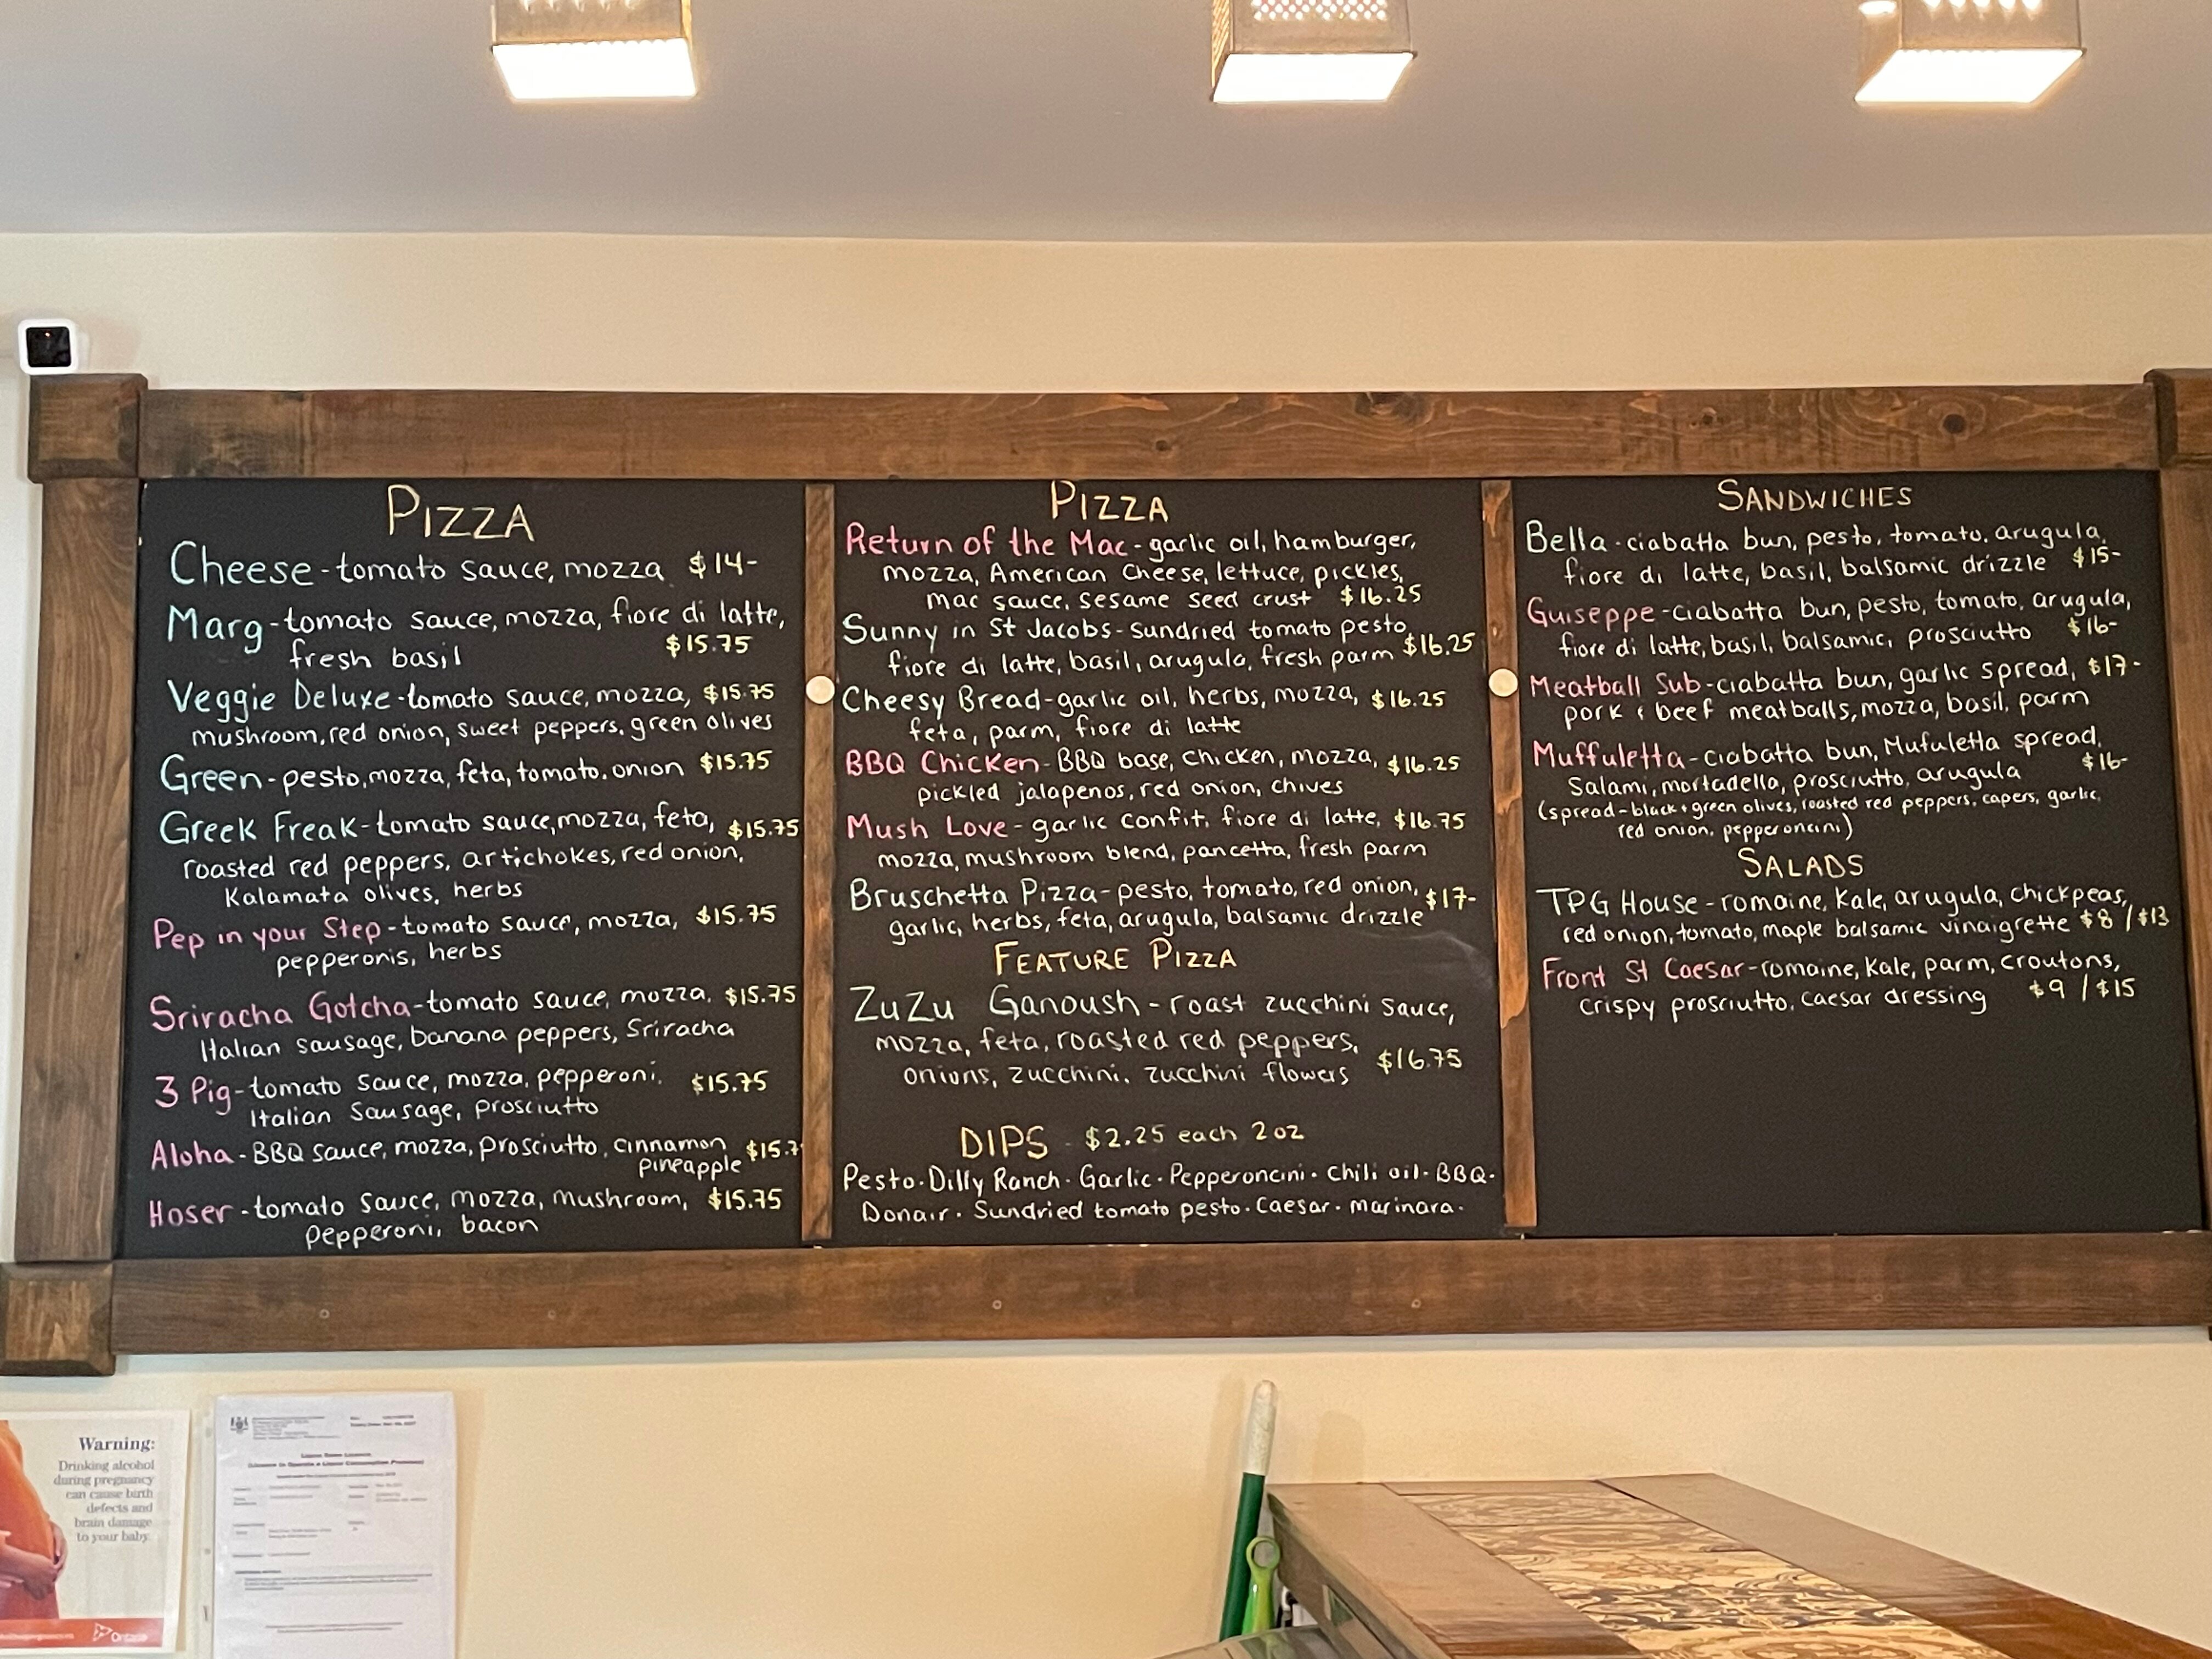 PIZZA
Cheese - tomato sauce, mozza $14-
Marg - tomato sauce, mozza, fiore di latte,
fresh basil $15.75
Veggie Deluxe - tomato sauce, mozza, $15.75
mushroom, red onion, sweet peppers, green olives
Green - pesto, mozza, feta, tomato, onion $15.75
Greek Freak - tomato sauce, mozza, feta, $15.75
roasted red peppers, artichokes, red onion,
Kalamata olives, herbs
Pep in your Step - tomato sauce, mozza, $15.75
pepperonis, herbs
Sriracha Gotcha - tomato sauce, mozza, $15.75
Italian sausage, banana peppers, Sriracha
3 Pig - tomato sauce, mozza, pepperoni, $15.75
Italian Sausage, prosciutto
Aloha - BBQ sauce, mozza, prosciutto, cinnamon $15.7
pineapple
Hoser - tomato sauce, mozza, mushroom, $15.75
pepperoni, bacon
PIZZA
Return of the Mac - garlic oil, hamburger,
mozza, American Cheese, lettuce, pickles,
mac sauce, sesame seed crust $16.25
Sunny in St Jacobs - sundried tomato pesto
fiore di latte, basil, arugula, fresh parm $16.25
Cheesy Bread - garlic oil, herbs, mozza, $16.25
feta, parm, fiore di latte
BBQ Chicken - BBQ base, chicken, mozza, $16.25
pickled jalapenos, red onion, chives
Mush Love - garlic confit, fiore di latte, $16.75
mozza, mushroom blend, pancetta, fresh parm
Bruschetta Pizza - pesto, tomato, red onion, $17-
garlic, herbs, feta, arugula, balsamic drizzle
FEATURE PIZZA
ZuZu Ganoush - roast zucchini sauce,
mozza, feta, roasted red peppers,
onions, zucchini, zucchini flowers $16.75
DIPS - $2.25 each 2oz
Pesto · Dilly Ranch · Garlic · Pepperoncini · Chili oil · BBQ ·
Donair · Sundried tomato pesto · Caesar · marinara ·
SANDWICHES
Bella - ciabatta bun, pesto, tomato, arugula,
fiore di latte, basil, balsamic drizzle $15-
Guiseppe - ciabatta bun, pesto, tomato, arugula,
fiore di latte, basil, balsamic, prosciutto $16-
Meatball Sub - ciabatta bun, garlic spread, $17-
pork & beef meatballs, mozza, basil, parm
Muffuletta - ciabatta bun, Mufuletta spread,
Salami, mortadella, prosciutto, arugula $16-
(spread - black + green olives, roasted red peppers, capers, garlic,
red onion, pepperoncini)
SALADS
TPG House - romaine, Kale, arugula, chickpeas,
red onion, tomato, maple balsamic vinaigrette $8 / $13
Front St Caesar - romaine, Kale, parm, croutons,
crispy prosciutto, caesar dressing $9 / $15
Warning:
Drinking alcohol
during pregnancy
can cause birth
defects and
brain damage
to your baby.
Ontario